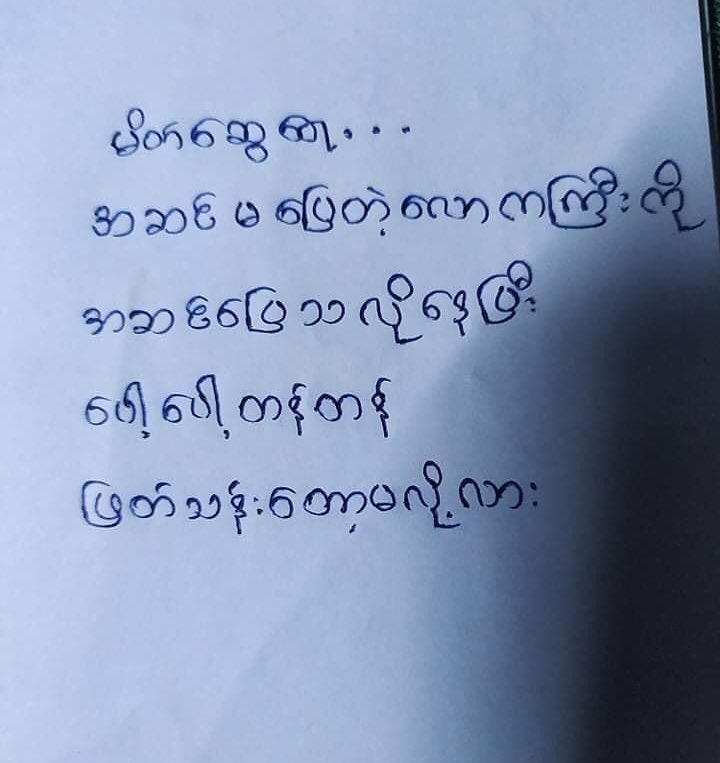 မိတ်ဆွေရာ...
အဆင်မပြေတဲ့လောကကြီးကို
အဆင်ပြေသလိုနေပြီး
ပေါ့ပေါ့တန်တန်
ဖြတ်သန်းတော့မလို့လား